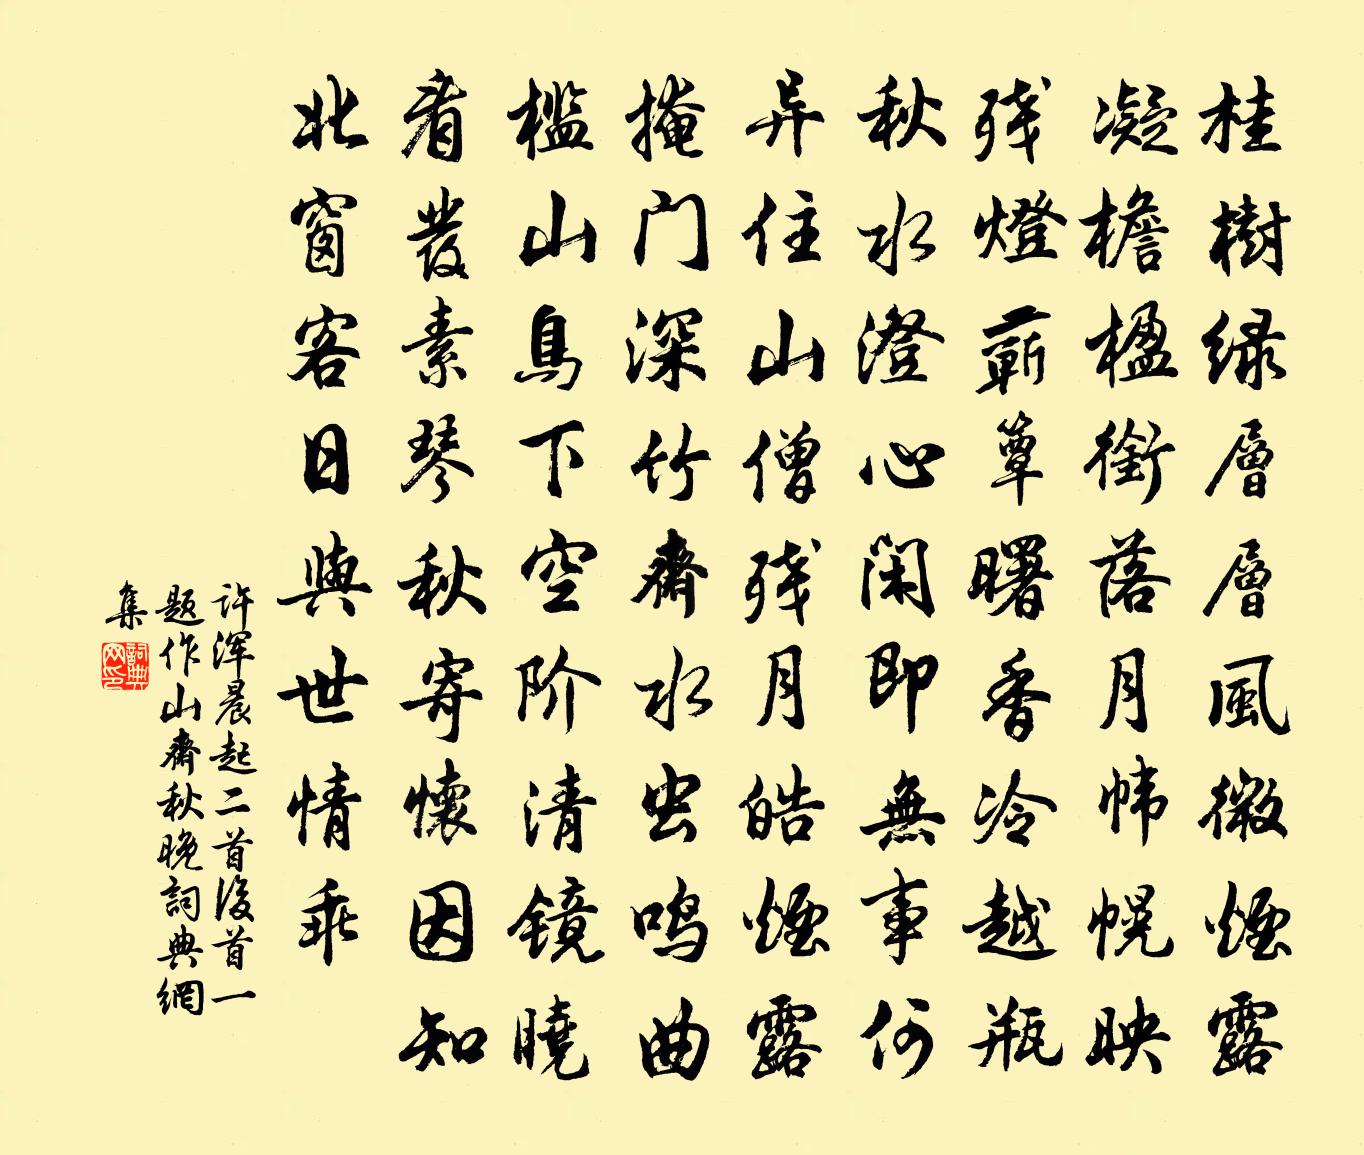 桂樹緑層層風微煙露
凝檐楹銜落月帏幌映
残燈蘄簟曙香冷越瓶
秋水澄心闲即無事何
异住山僧残月皓煙露
掩门深竹齋水虫鸣曲
槛山鳥下空阶清镜曉
看發素琴秋寄懷因知
北窗客日與世情乖
许浑晨起二首後首一
题作山齋秋晚詞典網
集
詞典
网印